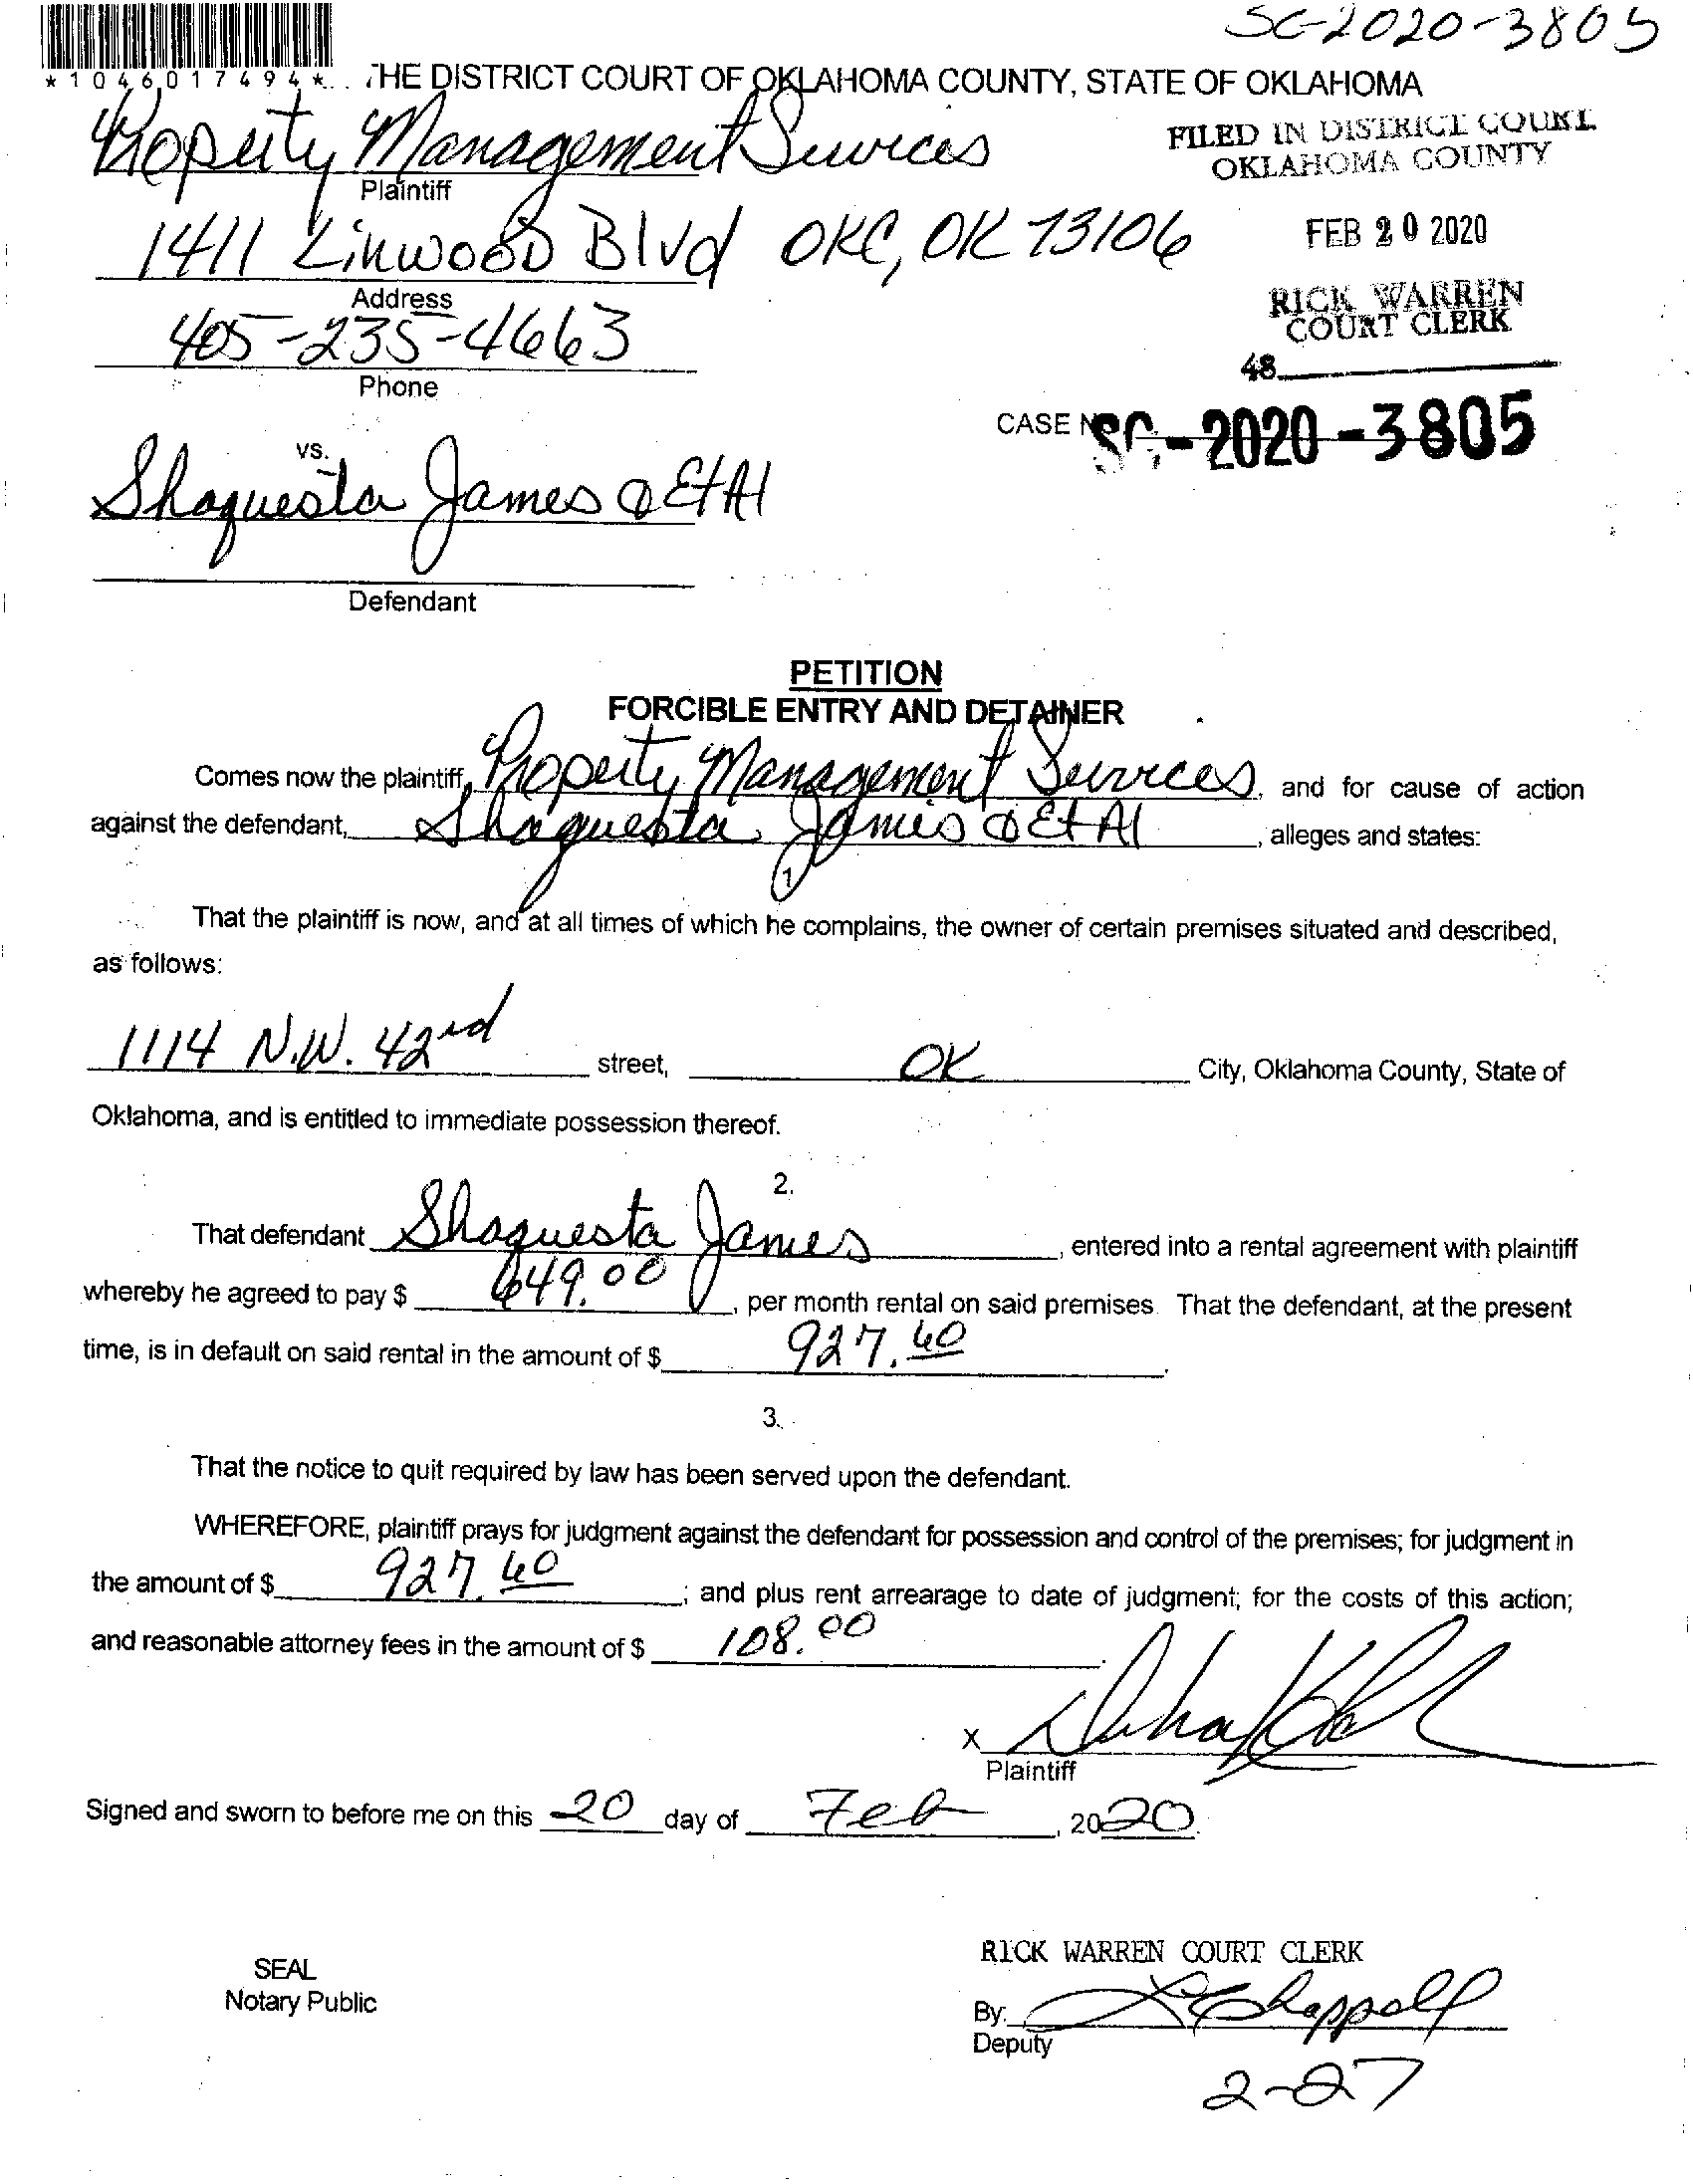 SC-2020-3805
*1046017494*
THE DISTRICT COURT OF OKLAHOMA COUNTY, STATE OF OKLAHOMA
Property Management Services
Plaintiff
FILED IN DISTRICT COURT
OKLAHOMA COUNTY
1411 Linwood Blvd OKC, OK 73106
Address
FEB 20 2020
405-235-4663
Phone
RICK WARREN
COURT CLERK
48
CASE NO. SC-2020-3805
vs.
Shaquesta James & Et Al
Defendant
PETITION
FORCIBLE ENTRY AND DETAINER
Comes now the plaintiff, Property Management Services, and for cause of action
against the defendant, Shaquesta James & Et Al, alleges and states:
1
That the plaintiff is now, and at all times of which he complains, the owner of certain premises situated and described,
as follows:
1114 N.W. 42nd street, OK City, Oklahoma County, State of
Oklahoma, and is entitled to immediate possession thereof.
2.
That defendant Shaquesta James, entered into a rental agreement with plaintiff
whereby he agreed to pay $ 649.00, per month rental on said premises. That the defendant, at the present
time, is in default on said rental in the amount of $ 927.60.
3.
That the notice to quit required by law has been served upon the defendant.
WHEREFORE, plaintiff prays for judgment against the defendant for possession and control of the premises; for judgment in
the amount of $ 927.60; and plus rent arrearage to date of judgment; for the costs of this action;
and reasonable attorney fees in the amount of $ 108.00.
X
Plaintiff
Signed and sworn to before me on this 20 day of Feb, 2020.
SEAL
Notary Public
RICK WARREN COURT CLERK
By: Chappell
Deputy
2-27